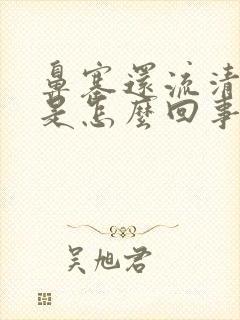 鼻塞還流清
是怎麼回事
吴旭君